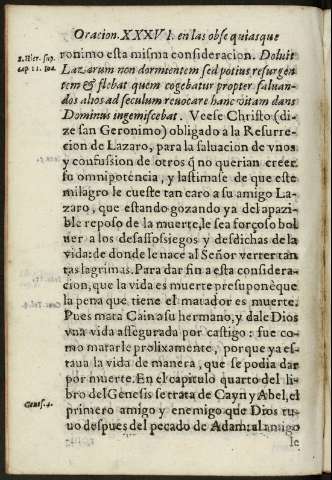 Oracion. XXXVI. en las obsequias que
S. Hier. sup.
cap 11. Ioa.
ronimo esta misma consideracion. Doluit
Lazarum non dormientem sed potius resurgen
tem & flebat quem cogebatur propter saluan-
dos alios ad seculum reuocare hanc vitam dans
Dominus ingemiscebat. Veese Christo (di-
ze san Geronimo) obligado a la Resurre-
cion de Lazaro, para la saluacion de vnos
y confussion de otros q̃ no querian creer
su omnipotẽcia, y lastimase de que este
milagro le cueste tan caro a su amigo La-
zaro, que estando gozando ya del apazi-
ble reposo de la muerte, le sea forçoso bol
uer a los desassossiegos y desdichas de la
vida: de donde le nace al Señor verter tan
tas lagrimas. Para dar fin a esta considera-
cion, que la vida es muerte presuponẽ que
la pena que tiene el matador es muerte.
Pues mata Cain a su hermano, y dale Dios
vna vida assegurada por castigo: fue co-
mo matarle prolixamente, porque ya es-
taua la vida de manera, que se podia dar
por muerte. En el capitulo quarto del li-
Genes. 4.
bro del Genesis se trata de Cayn y Abel, el
primero amigo y enemigo que Dios tu-
uo despues del pecado de Adam: al amigo
le